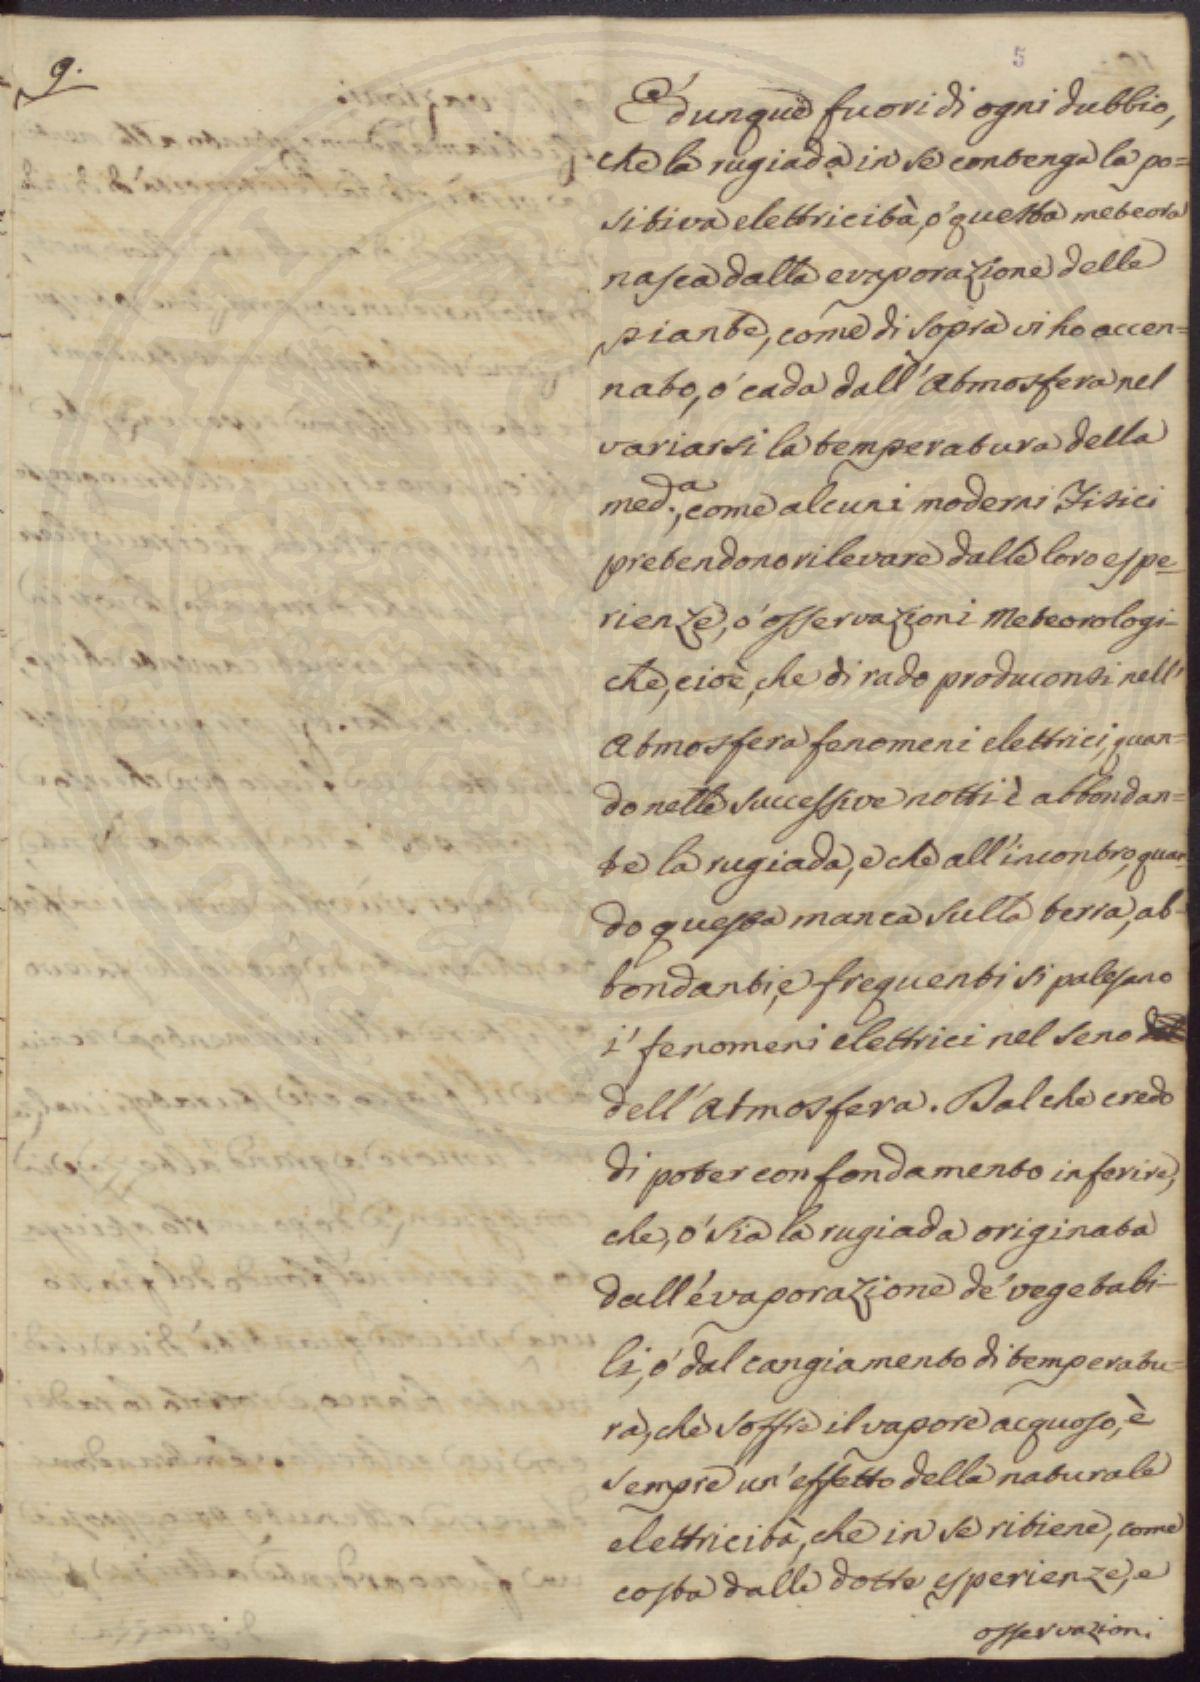 9.
5
È dunque fuori di ogni dubbio,
che la rugiada in se contenga la po=
sitiva elettricità, o' questa meteora
nasca dalla evaporazione delle
piante, come di sopra vi ho accen=
nato, o' cada dall'Atmosfera nel
variarsi la temperatura della
med.a, come alcuni moderni Fisici
pretendono rilevare dalle loro espe=
rienze, o' osservazioni Meteorologi-
che, cioè, che di rado produconsi nell'
Atmosfera fenomeni elettrici, quan=
do nelle successive notti è abbondan=
te la rugiada, e che all'incontro, quan
do questa manca sulla terra, ab=
bondanti, e frequenti si palesano
i' fenomeni elettrici nel seno
dell'Atmosfera. Dal che credo
di poter con fondamento inferire,
che, o' sia la rugiada originata
dall'evaporazione de' vegetabi-
li, o' dal cangiamento di temperatu=
ra, che soffre il vapore acquoso, è
sempre un'effetto della naturale
elettricità, che in se ritiene, come
costa dalle dotte esperienze, e
osservazioni